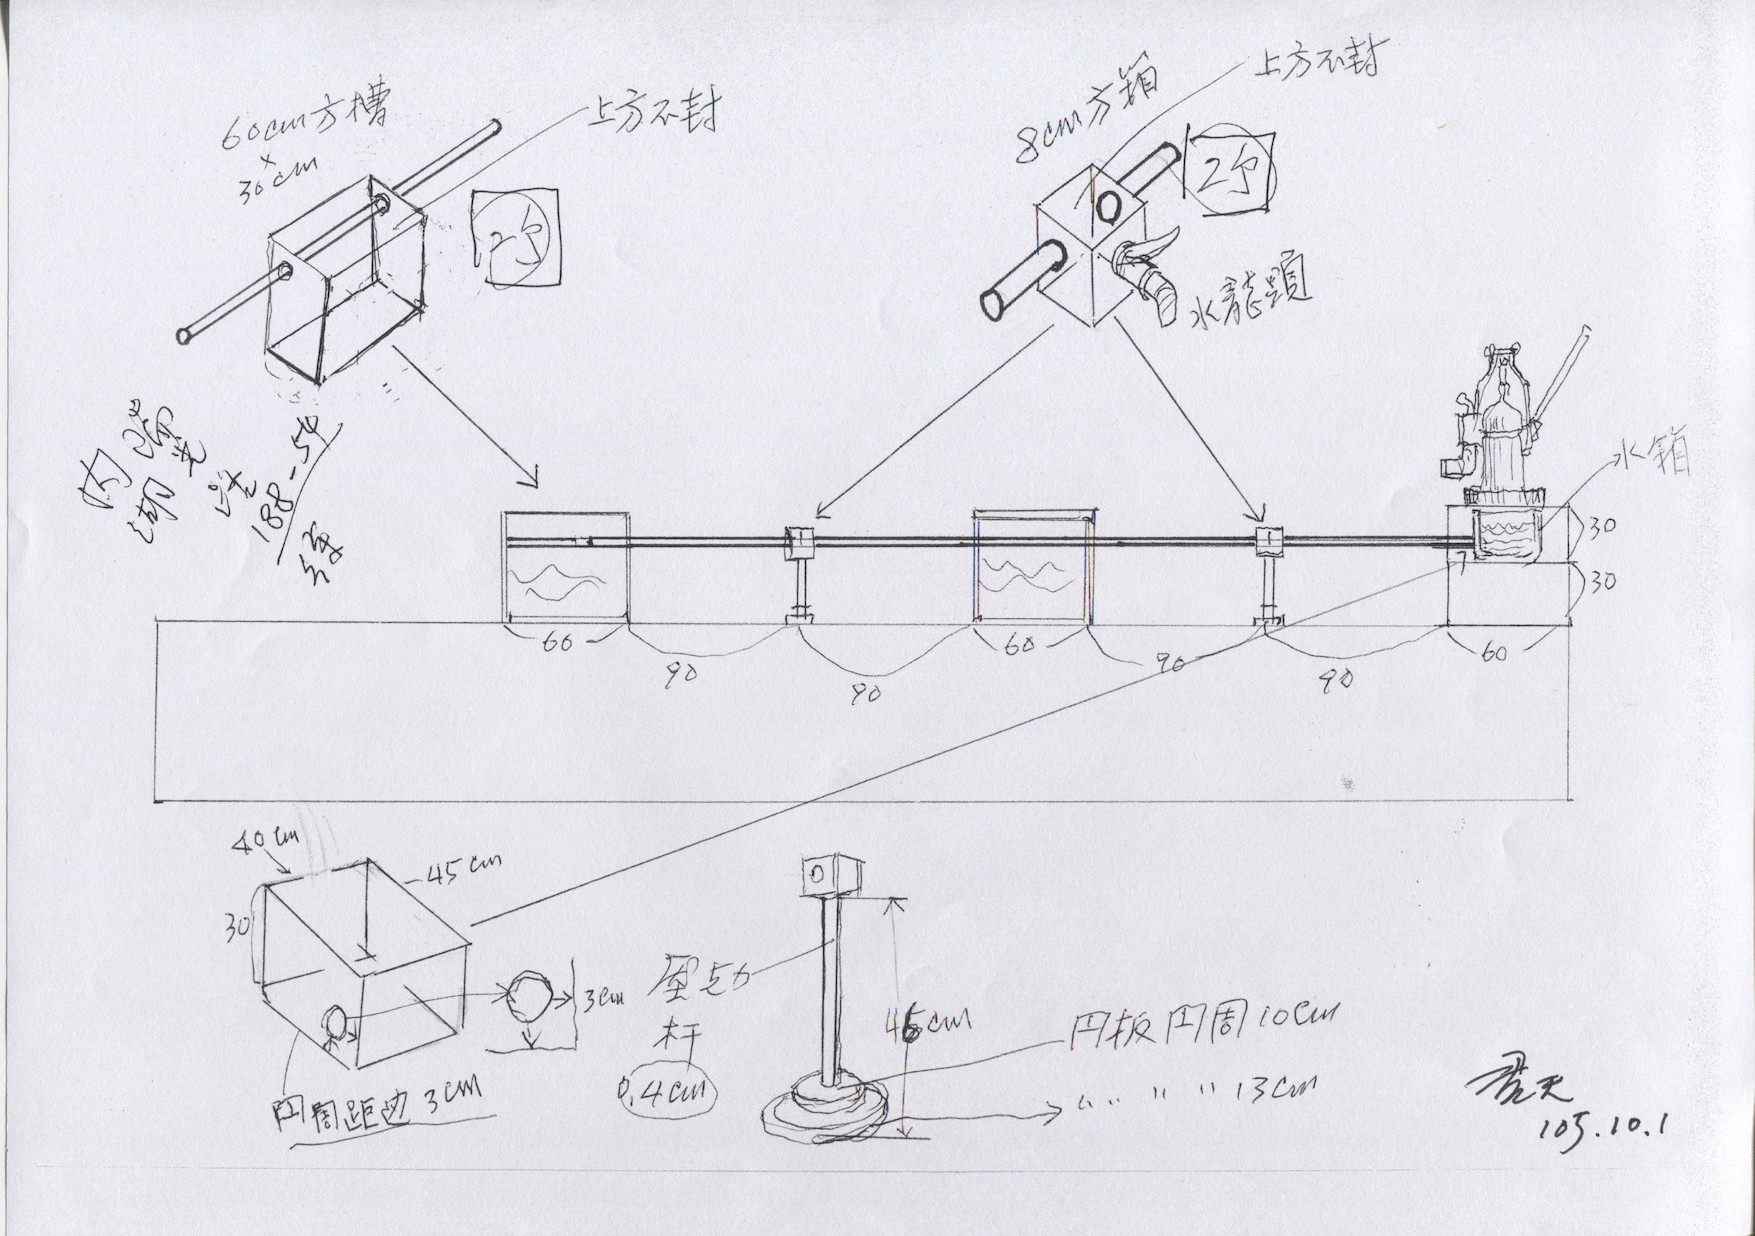 60cm方槽
x
30cm
上方不封
2个
8cm方箱
上方不封
2个
水龍頭
188-54
水箱
30
30
60
90
90
60
90
90
60
40cm
45cm
30
3cm
円周距边3cm
杆
0.4cm
45cm
円板円周10cm
〃 〃 〃 13cm
105.10.1